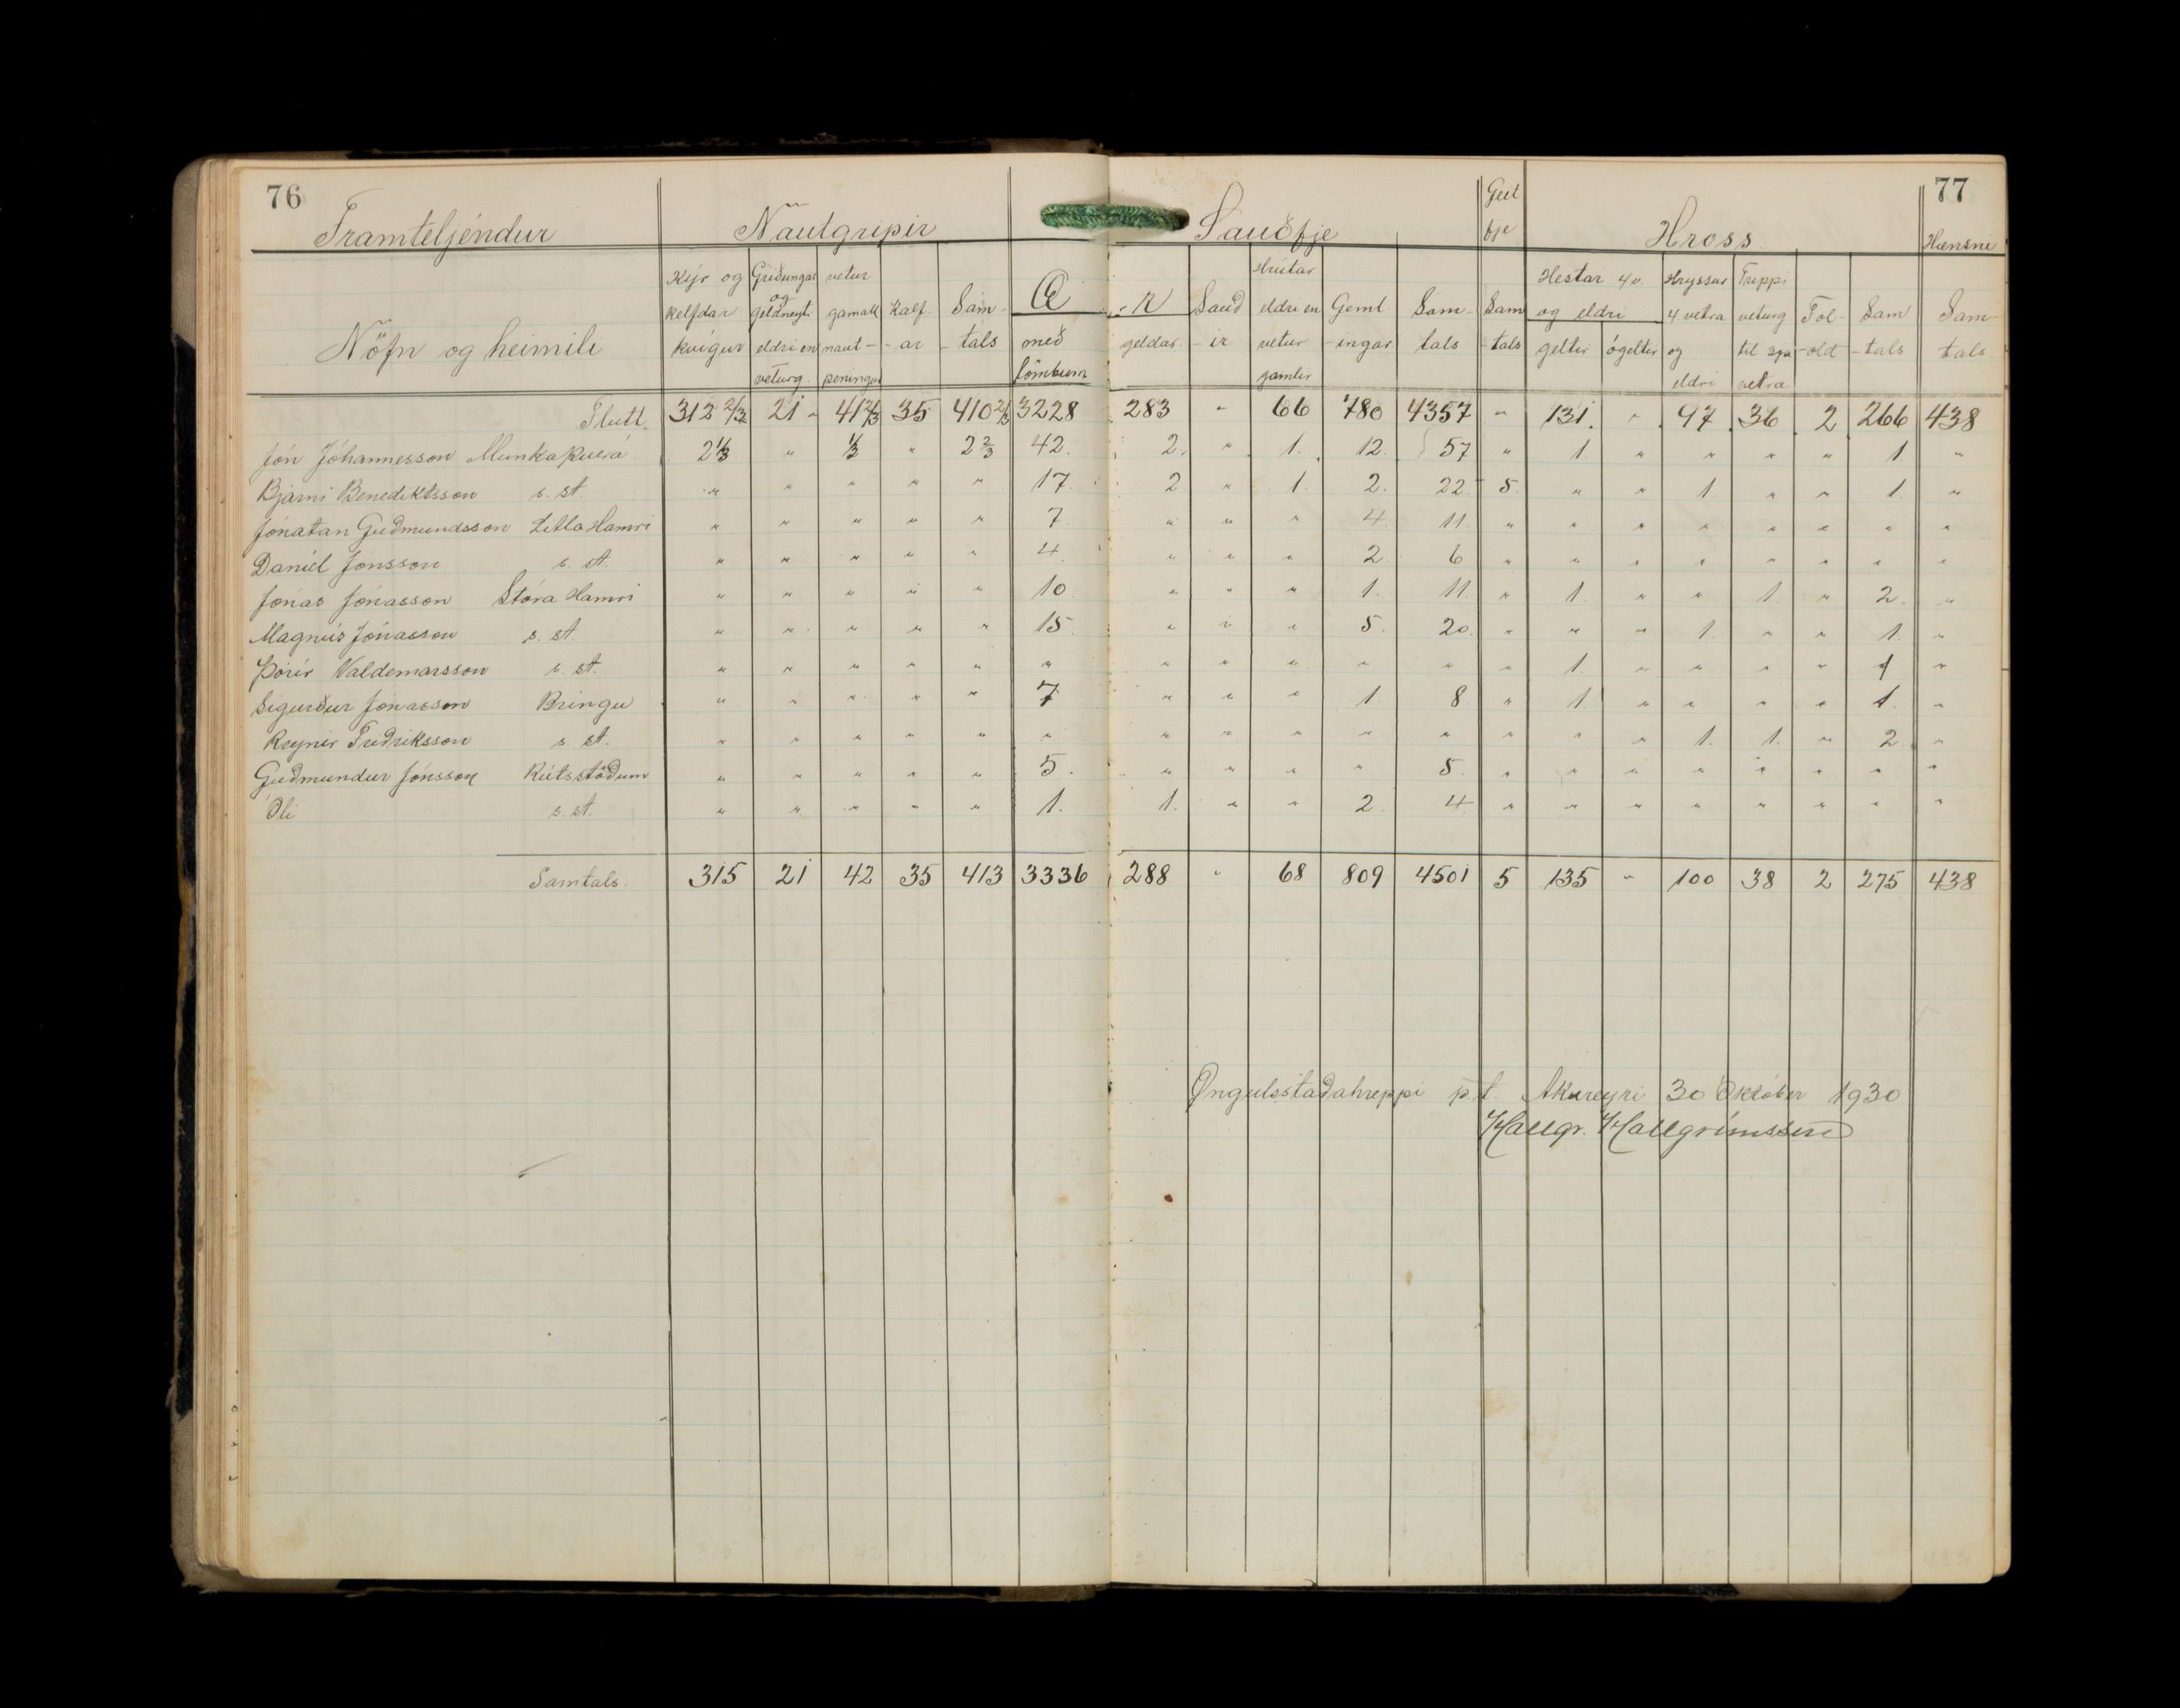 76
77
Framteljéndur Nautgripir Sauðfje Geitfje Hross Hænsni
Nöfn og heimili
Kýr og kelfdar kvígur
Griðungar og geldneyti eldri en veturg.
vetur gamall naut-peningur
Kálf-ar
Sam-tals
Æ-R
með lömbum
geldar
Sauð-ir
Hrútar eldri en vetur gamlir
Geml-ingar
Sam-tals
Sam-tals
Hestar 4 v. og eldri
geltir
ógeltir
Hryssur 4 vetra og eldri
Trippi veturg til 3ja vetra
Fol-öld
Sam-tals
Sam-tals
Flutt. 312 2/3 21 " 41 2/3 35 410 2/3 3228 283 " 66 780 4357 " 131. " 97 36 2 266 438
Jón Jóhannesson Munkaþverá 2 1/3 " 1/3 " 2 2/3 42. 2. " 1. 12. 57 " 1. " " " " 1. "
Bjarni Benediktsson s. st. " " " " " 17. 2 " 1. 2. 22 5. " " 1. " " 1. "
Jónatan Guðmundsson Litla Hamri " " " " " 7. " " " 4. 11. " " " " " " " "
Daníel Jónsson s. st. " " " " " 4. " " " 2. 6 " " " " " " " "
Jónas Jónasson Stóra Hamri " " " " " 10. " " " 1. 11. " 1. " " 1. " 2. "
Magnús Jónasson s. st. " " " " " 15. " " " 5. 20. " " " 1. " " 1. "
Þórir Valdemarsson s. st. " " " " " " " " " " " " 1. " " " " 1 "
Sigurður Jónasson Bringu " " " " " 7 " " " 1. 8 " 1. " " " " 1. "
Reynir Friðriksson s. st. " " " " " " " " " " " " " " 1. 1. " 2. "
Guðmundur Jónsson Rútsstöðum " " " " " 5. " " " " 5. " " " " " " " "
Óli s. st. " " " " " 1. 1. " " 2. 4 " " " " " " " "
Samtals. 315 21 42 35 413 3336 288 " 68 809 4501 5 135 " 100 38 2 275 438
Öngulsstaðahreppi p.t. Akureyri 30 Október 1930
Hallgr. Hallgrímsson